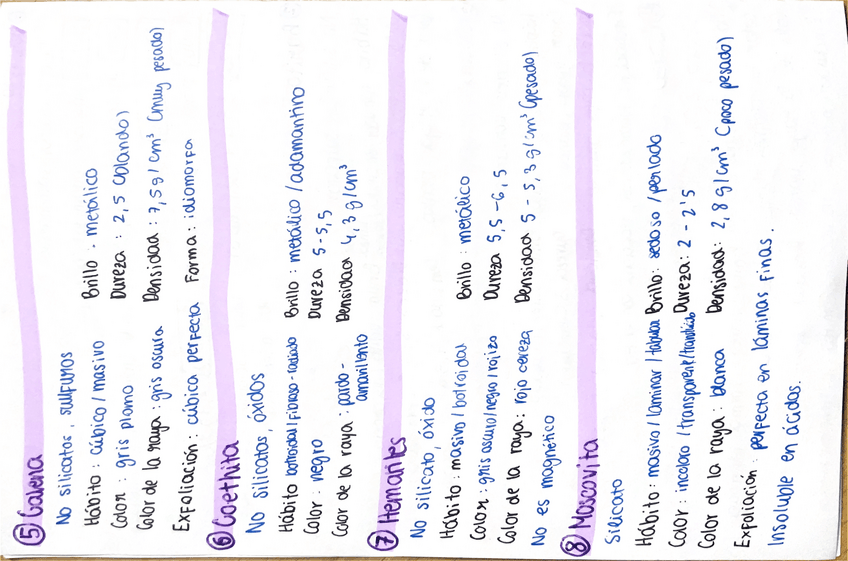 ⑤ Galena
No silicatos, sulfuros
Hábito : cúbico / masivo Brillo : metálico
Color : gris plomo Dureza : 2,5 (blando)
Color de la raya : gris oscura Densidad : 7,5 g/cm³ (muy pesado)
Exfoliación : cúbica perfecta Forma : idiomorfa
⑥ Goethita
No silicatos, óxidos
Hábito botroidal / fibroso-radiado Brillo : metálico / adamantino
Color : negro Dureza 5-5,5
Color de la raya : pardo-amarillento Densidad 4,3 g/cm³
⑦ Hematites
No silicato, óxido
Hábito : masivo / botroidal Brillo : metálico
Color : gris oscuro / negro / rojizo Dureza 5,5-6,5
Color de la raya : rojo cereza Densidad 5-5,3 g/cm³ (pesado)
No es magnético
⑧ Moscovita
Silicato
Hábito : masivo / laminar / tabular Brillo : sedoso / perlado
Color : incoloro / transparente / translúcido Dureza : 2-2'5
Color de la raya : blanca Densidad : 2,8 g/cm³ (poco pesado)
Exfoliación : perfecta en láminas finas.
Insoluble en ácidos.